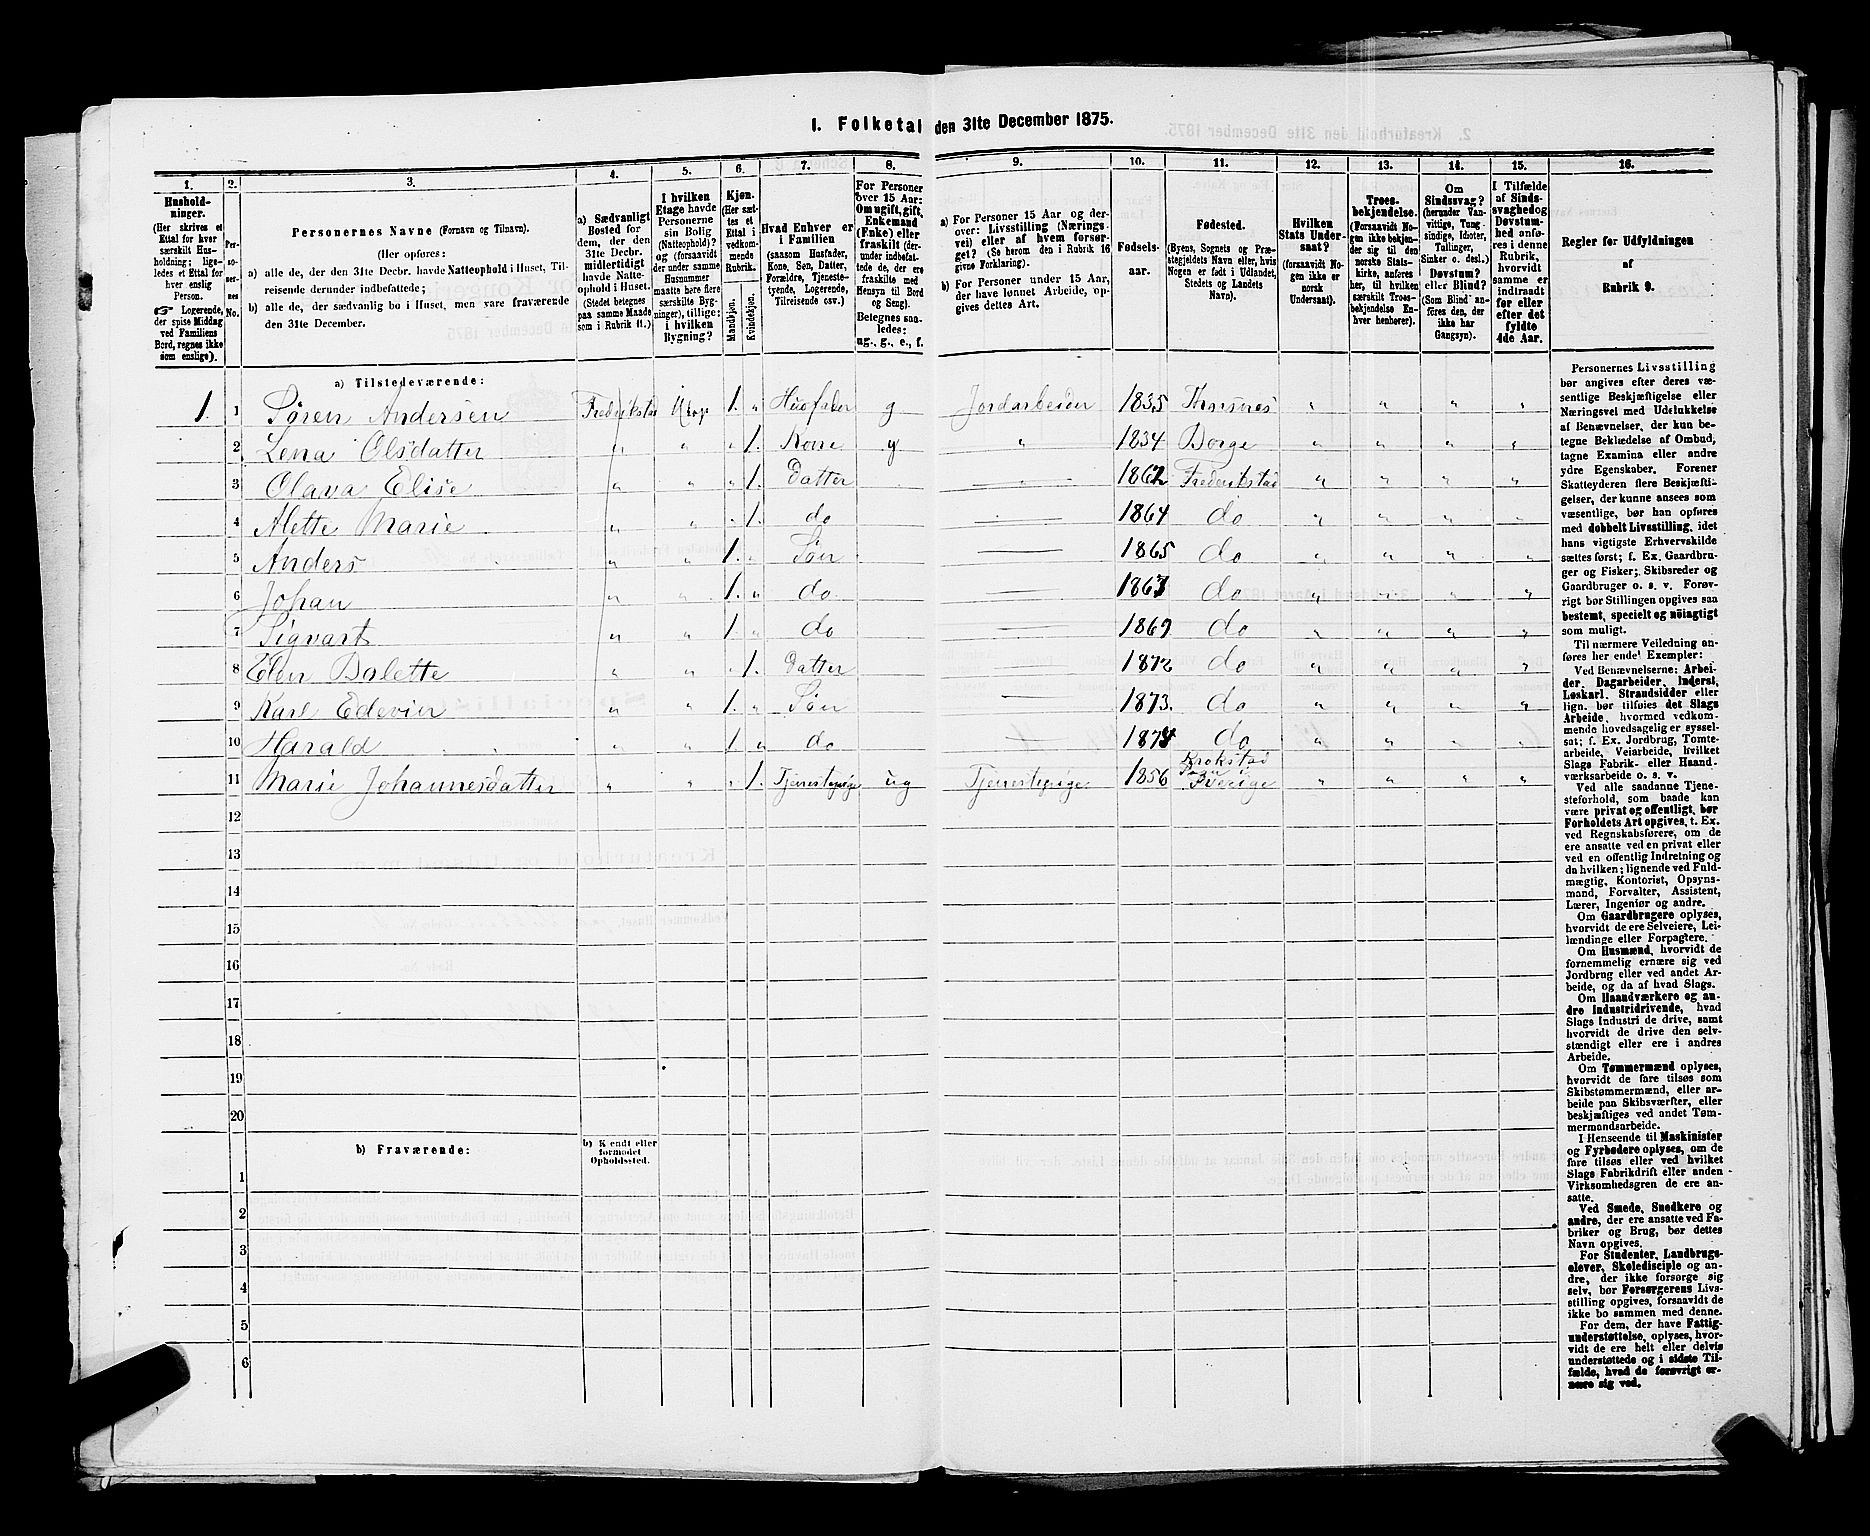 1. Folketal den 31te December 1875.
1. 2. 3. 4. 5. 6. 7. 8. 9. 10. 11. 12. 13. 14. 15. 16.
Husholdninger.
(Her skrives et
Ettal for hver
særskilt Hus-
holdning; lige-
ledes et Ettal for
hver enslig
Person.
☞ Logerende,
der spise Middag
ved Familiens
Bord, regnes ikke
som enslige).
Personernes No.
Personernes Navne (Fornavn og Tilnavn).
(Her opføres:
a) alle de, der den 31te Decbr. havde Natteophold i Huset, Til-
reisende derunder indbefattede;
b) alle de, der sædvanlig bo i Huset, men vare fraværende
den 31te December.
a) Sædvanligt
Bosted for
dem, der den
31te Decbr.
midlertidigt
havde Natte-
ophold i Huset.
(Stedet betegnes
paa samme Maade
som i Rubrik 11.)
I hvilken
Etage havde
Personerne
sin Bolig
(Natteophold)?
og (forsaavidt
der under samme
Husnummer
maatte høre flere
særskilte Byg-
ninger), tillige:
i hvilken
Bygning?
Kjøn.
(Her sæt-
tes et
Ettal i
vedkom-
mende
Rubrik.
Mandkjøn.
Kvindekjøn.
Hvad Enhver er
i Familien
(saasom Husfader,
Kone, Søn, Datter,
Forældre, Tjeneste-
tyende, Logerende,
Tilreisende osv.)
For Personer
over 15 Aar:
Om ugift, gift,
Enkemand
(Enke) eller
fraskilt (der-
under indbefat-
tede de, der ere
fraskilte med
Hensyn til Bord
og Seng).
Betegnes saa-
ledes:
ug., g., e., f.
a) For Personer 15 Aar og der-
over: Livsstilling (Nærings-
vei) eller af hvem forsør-
get? (Se herom den i Rubrik 16
givne Forklaring).
b) For Personer under 15 Aar,
der have lønnet Arbeide, op-
gives dettes Art.
Fødsels-
aar.
Fødested.
(Byens, Sognets og Præ-
stegjeldets Navn eller, hvis
Nogen er født i Udlandet,
Stedets og Landets
Navn).
Hvilken
Stats Under-
saat?
(forsaavidt No-
gen ikke er
norsk
Undersaat).
Troes-
bekjendelse.
(Forsaavidt No-
gen ikke bekjen-
der sig til den
norske Stats-
kirke, anføres
her, til hvilken
særskilt Troes-
bekjendelse En-
hver henhører).
Om
Sindssvag?
(herunder Van-
vittige, Tung-
sindige, Idioter,
Tullinger,
Sinker o. desl.)
Døvstum?
eller Blind?
(Som Blind an-
føres den, der
ikke har
Gangsyn).
I Tilfælde
af Sinds-
svaghed og
Døvstum-
hed anfø-
res i denne
Rubrik,
hvorvidt
samme er
indtraadt
før eller
efter det
fyldte
4de Aar.
Regler for Udfyldningen
af
Rubrik 9.
a) Tilstedeværende:
1. 1 Søren Andersen Frederikstad 1. „ Husfader g Jordarbeider 1835 „ „ „ „
2 Lena Olsdatter „ „ „ 1. Kone g „ 1834 Borge „ „ „ „
3 Olava Elise „ „ „ 1. Datter „ 1862 Frederikstad „ „ „ „
4 Alette Marie „ „ „ 1. do 1864 do „ „ „ „
5 Anders „ „ 1. „ Søn 1865 do „ „ „ „
6 Johan „ „ 1. „ do 1867 do „ „ „ „
7 Sigvart „ „ 1. „ do 1869 do „ „ „ „
8 Elen Bolette „ „ „ 1. Datter 1872 do „ „ „ „
9 Karl Edevin „ „ 1. „ Søn 1873. do „ „ „ „
10 Harald „ „ 1. „ do 1874 do „ „ „ „
11 Marie Johannesdatter „ „ „ 1. Tjenestepige ug Tjenestepige 1856 „ „ „ „
12
13
14
15
16
17
18
19
20
b) Fraværende:
b) Kjendt eller
formodet
Opholdssted.
1
2
3
4
5
6
Personernes Livsstilling
bør angives efter deres væ-
sentlige Beskjæftigelse eller
Næringsvei med Udelukkelse
af Benævnelser, der kun be-
tegne Beklædelse af Ombud,
tagne Examina eller andre
ydre Egenskaber. Forener
Skatteyderen flere Beskjæfti-
gelser, der kunne ansees som
væsentlige, bør han opføres
med dobbelt Livsstilling, idet
hans vigtigste Erhvervskilde
sættes først; f. Ex. Gaardbru-
ger og Fisker; Skibsreder og
Gaardbruger o. s. v. Forøv-
rigt bør Stillingen opgives saa
bestemt, specielt og nöiagtigt
som muligt.
Til nærmere Veiledning an-
føres her endel Exempler:
Ved Benævnelserne: Arbei-
der, Dagarbeider, Inderst,
Løskarl, Strandsidder eller
lign. bør tilføies det Slags
Arbeide, hvormed vedkom-
mende hovedsagelig er syssel-
sat; f. Ex. Jordbrug, Tomte-
arbeide, Veiarbeide, hvilket
Slags Fabrik- eller Haand-
værksarbeide o. s. v.
Ved alle saadanne Tjene-
steforhold, som baade kan
være privat og offentligt, bør
Forholdets Art opgives, t. Ex.
ved Regnskabsførere, om de
ere ansatte ved en privat eller
ved en offentlig Indretning og
da hvilken; lignende ved Fuld-
mægtig, Kontorist, Opsyns-
mand, Forvalter, Assistent,
Lærer, Ingeniør og andre.
Om Gaardbrugere oplyses,
hvorvidt de ere Selveiere, Lei-
lændinge eller Forpagtere.
Om Husmænd, hvorvidt de
fornemmelig ernære sig ved
Jordbrug eller ved andet Ar-
beide, og da af hvad Slags.
Om Haandværkere og an-
dre Industridrivende, hvad
Slags Industri de drive, samt
hvorvidt de drive den selv-
stændigt eller ere i andres
Arbeide.
Om Tømmermænd oplyses,
hvorvidt de fare tilsøs som
Skibstømmermænd, eller ar-
beide paa Skibsværfter, eller
beskjæftiges ved andet Tøm-
mermandsarbeide.
I Henseende til Maskinister
og Fyrbødere oplyses, om de
fare tilsøs eller ved hvilket
Slags Fabrikdrift eller anden
Virksomhedsgren de ere an-
satte.
Ved Smede, Snedkere og
andre, der ere ansatte ved Fa-
briker og Brug, bør dettes
Navn opgives.
For Studenter, Landbrugs-
elever, Skoledisciple og an-
dre, der ikke forsørge sig
selv, bør Forsørgerens Livs-
stilling opgives, forsaavidt de
ikke bo sammen med denne.
For dem, der have Fattig-
understøttelse, oplyses, hvor-
vidt de ere helt eller delvis
understøttede og i sidste Til-
fælde, hvad de forøvrigt er-
nære sig ved.